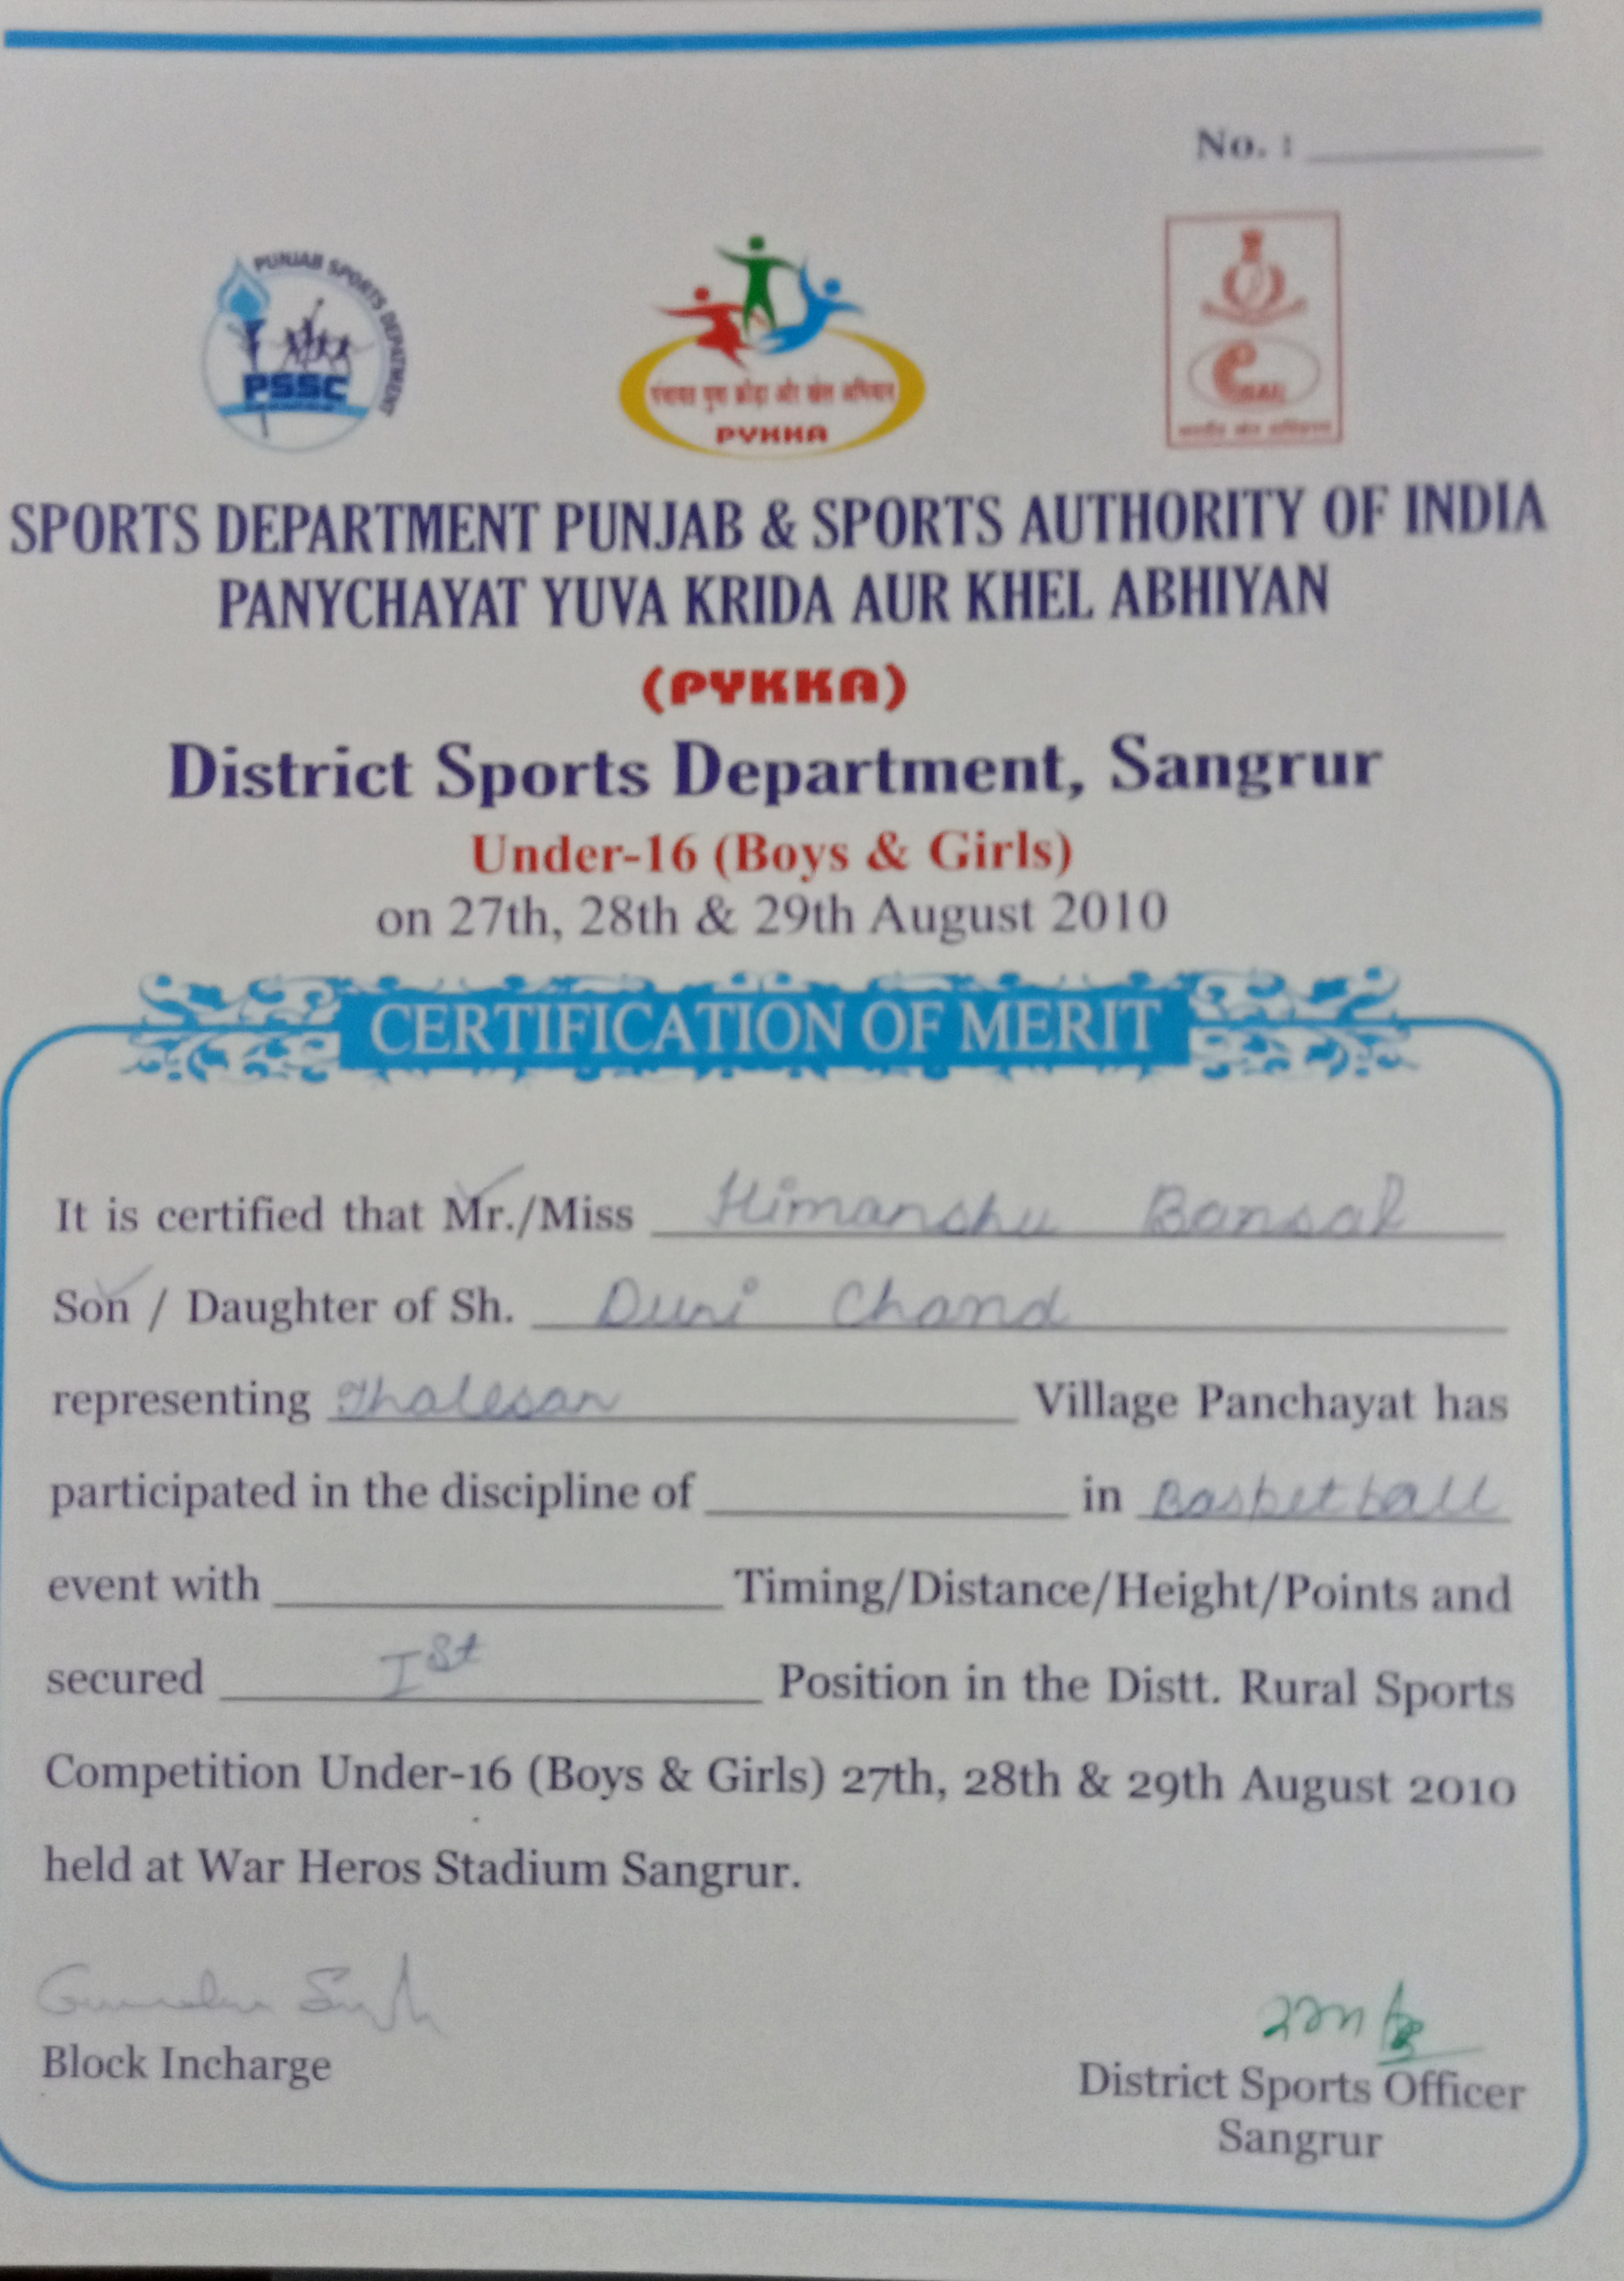 No. :
PUNJAB SPORTS DEPATMENT
PSSC
पंचायत युवा क्रीड़ा और खेल अभियान
PYKKA
SAI
भारतीय खेल प्राधिकरण
SPORTS DEPARTMENT PUNJAB & SPORTS AUTHORITY OF INDIA
PANYCHAYAT YUVA KRIDA AUR KHEL ABHIYAN
(PYKKA)
District Sports Department, Sangrur
Under-16 (Boys & Girls)
on 27th, 28th & 29th August 2010
CERTIFICATION OF MERIT
It is certified that Mr./Miss Himanshu Bansal
Son / Daughter of Sh. Duni Chand
representing Thalesan Village Panchayat has
participated in the discipline of in Basketball
event with Timing/Distance/Height/Points and
secured Ist Position in the Distt. Rural Sports
Competition Under-16 (Boys & Girls) 27th, 28th & 29th August 2010
held at War Heros Stadium Sangrur.
Block Incharge
District Sports Officer
Sangrur